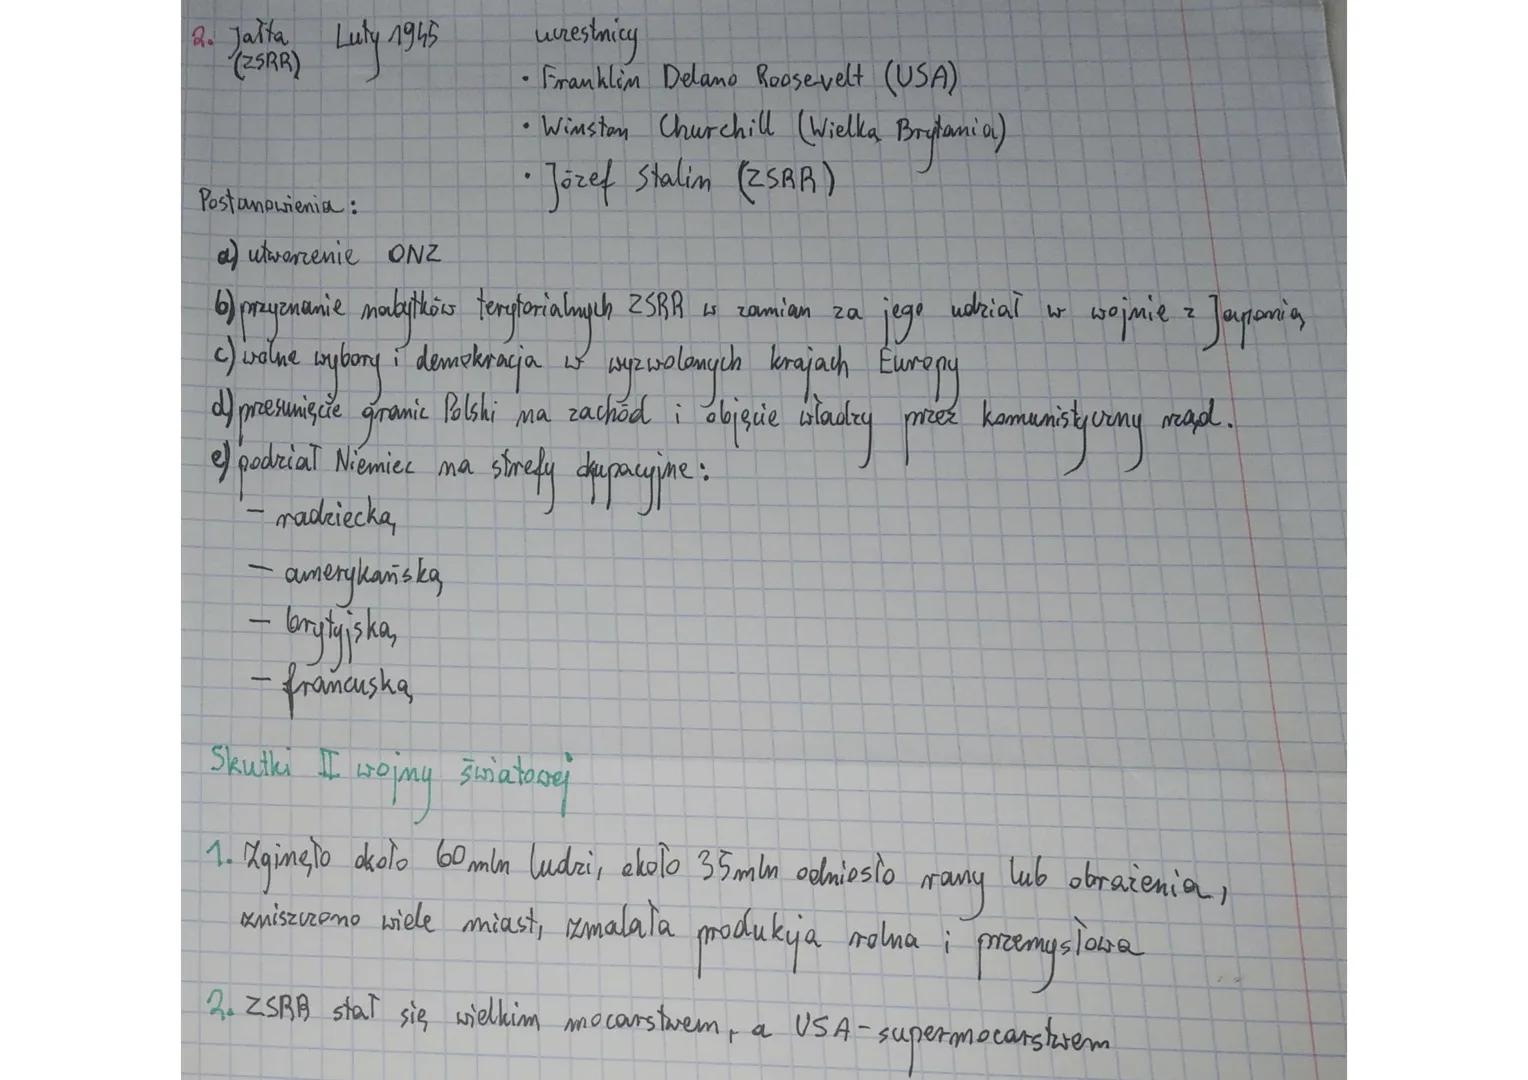 2. Jałta Luty 1945 uczestnicy
(ZSRR)
• Franklin Delano Roosevelt (USA)
• Winston Churchill (Wielka Brytania)
• Józef Stalin (ZSRR)
Postanowienia:
a) utworzenie ONZ
b) przyznanie nabytków terytorialnych ZSRR w zamian za jego udział w wojnie z Japonią
c) wolne wybory i demokracja w wyzwolonych krajach Europy
d) przesunięcie granic Polski na zachód i objęcie władzy przez komunistyczny rząd.
e) podział Niemiec na strefy okupacyjne:
- radziecką
- amerykańską
- brytyjską
- francuską
Skutki II wojny światowej
1. Zginęło około 60 mln ludzi, około 35 mln odniosło rany lub obrażenia,
zniszczono wiele miast, zmalała produkcja rolna i przemysłowa
2. ZSRR stał się wielkim mocarstwem, a USA-supermocarstwem